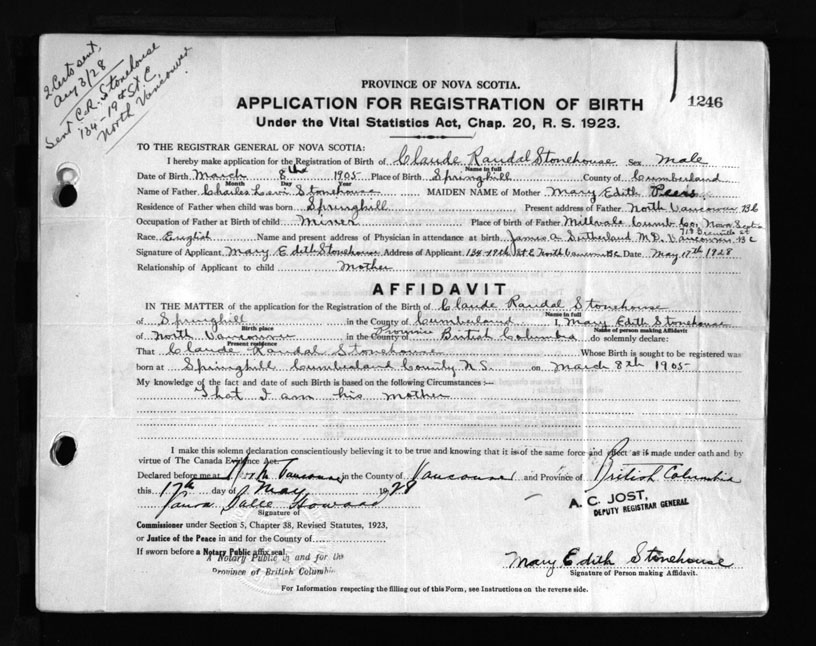 2 Certs sent,
Aug 3/28
Sent C.R. Stonehouse
134-19th St. E
North Vancouver
PROVINCE OF NOVA SCOTIA.
APPLICATION FOR REGISTRATION OF BIRTH
1246
Under the Vital Statistics Act, Chap. 20, R. S. 1923.
TO THE REGISTRAR GENERAL OF NOVA SCOTIA:
I hereby make application for the Registration of Birth of Claude Randal Stonehouse Sex Male
Name in full
Date of Birth March 8th 1905 Place of Birth Springhill County of Cumberland
Month Day Year
Name of Father Charles Levi Stonehouse MAIDEN NAME of Mother Mary Edith Peers
Residence of Father when child was born Springhill Present address of Father North Vancouver BC
Occupation of Father at Birth of child Miner Place of Birth of Father Millvale Cumb Co; Nova Scotia
Race English Name and present address of Physician in attendance at birth James A Sutherland M.D. Vancouver BC
Signature of Applicant Mary Edith Stonehouse Address of Applicant 134-19th St E North Vancouver BC Date May 17th 1928
Relationship of Applicant to child Mother
AFFIDAVIT
IN THE MATTER of the application for the Registration of the Birth of Claude Randal Stonehouse
Name in full
of Springhill in the County of Cumberland I, Mary Edith Stonehouse
Birth place Name of person making Affidavit
of North Vancouver in the County Province of British Columbia do solemnly declare:
Present residence
That Claude Randal Stonehouse Whose Birth is sought to be registered was
born at Springhill Cumberland County N.S. on March 8th 1905
My knowledge of the fact and date of such Birth is based on the following Circumstances :—
That I am his mother
I make this solemn declaration conscientiously believing it to be true and knowing that it is of the same force and effect as if made under oath and by
virtue of The Canada Evidence Act.
Declared before me at North Vancouver in the County of Vancouver and Province of British Columbia
this 17th day of May 1928
A. C. JOST,
DEPUTY REGISTRAR GENERAL
Howard
Signature of
Commissioner under Section 5, Chapter 38, Revised Statutes, 1923,
or Justice of the Peace in and for the County of
If sworn before a Notary Public affix seal.
A Notary Public in and for the
Province of British Columbia
Mary Edith Stonehouse
Signature of Person making Affidavit.
For Information respecting the filling out of this Form, see Instructions on the reverse side.